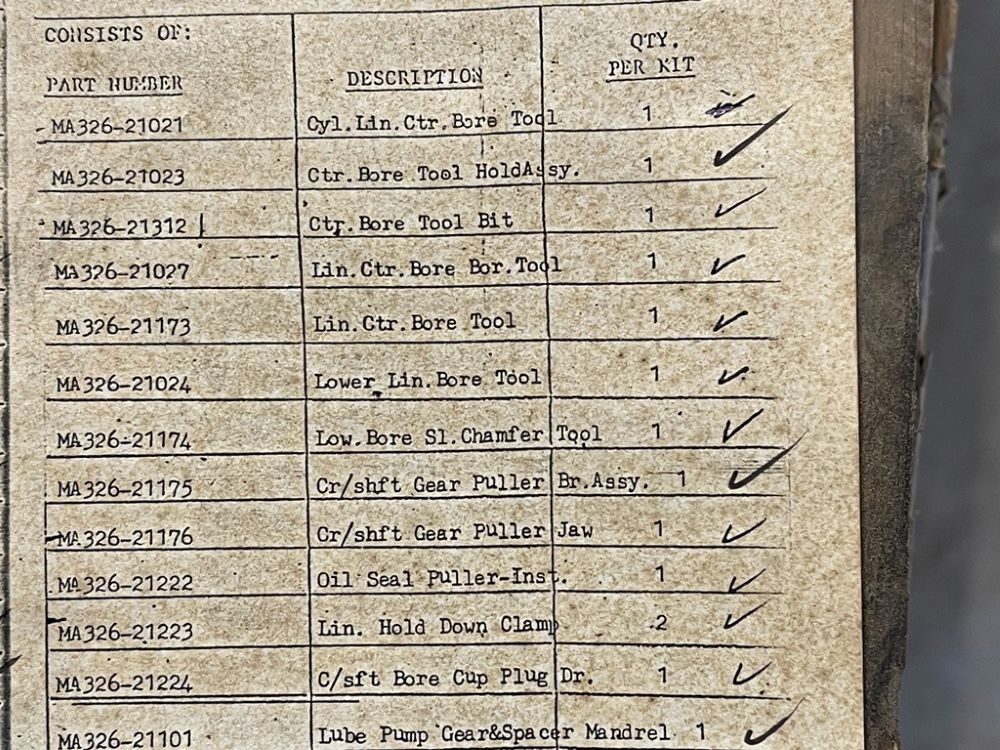 CONSISTS OF:
PART NUMBER DESCRIPTION QTY. PER KIT
MA326-21021 Cyl.Lin.Ctr.Bore Tool 1
MA326-21023 Ctr.Bore Tool HoldAssy. 1
MA326-21312 Ctr.Bore Tool Bit 1
MA326-21027 Lin.Ctr.Bore Bor.Tool 1
MA326-21173 Lin.Ctr.Bore Tool 1
MA326-21024 Lower Lin.Bore Tool 1
MA326-21174 Low.Bore Sl.Chamfer Tool 1
MA326-21175 Cr/shft Gear Puller Br.Assy. 1
MA326-21176 Cr/shft Gear Puller Jaw 1
MA326-21222 Oil Seal Puller-Inst. 1
MA326-21223 Lin. Hold Down Clamp 2
MA326-21224 C/sft Bore Cup Plug Dr. 1
MA326-21101 Lube Pump Gear&Spacer Mandrel 1